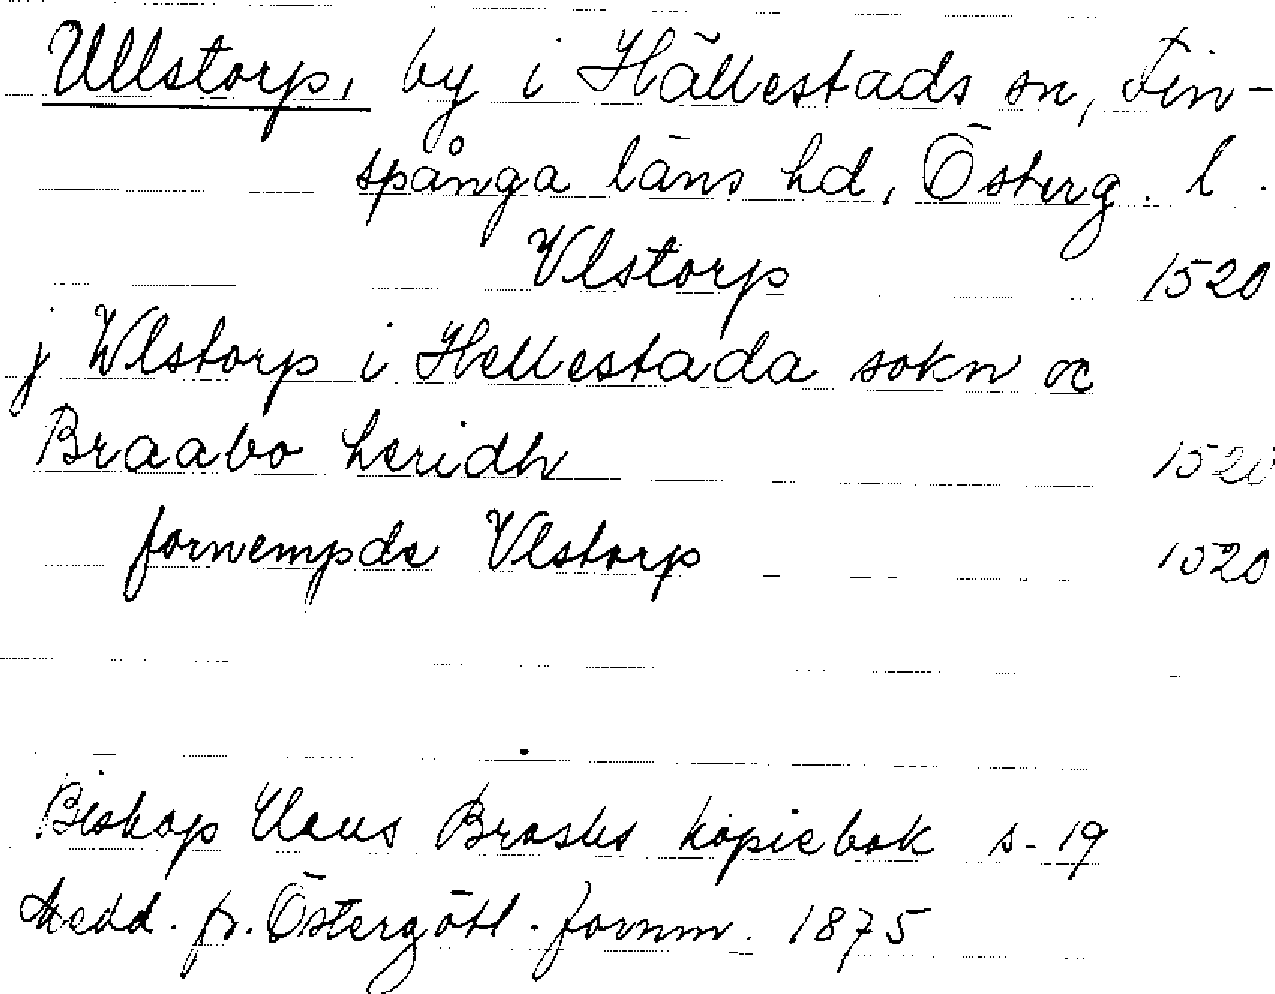 Ullstorp, by i Hällestads sn, Fin-
spånga läns hd, Österg. l.
Vlstorp 1520
j Wlstorp i Hellestada sokn oc
Braabo heridh 1520
fornempde Vlstorp 1520
Biskop Claus Brasks kopiebok s. 19
Medd. fr. Östergötl. fornm. 1875